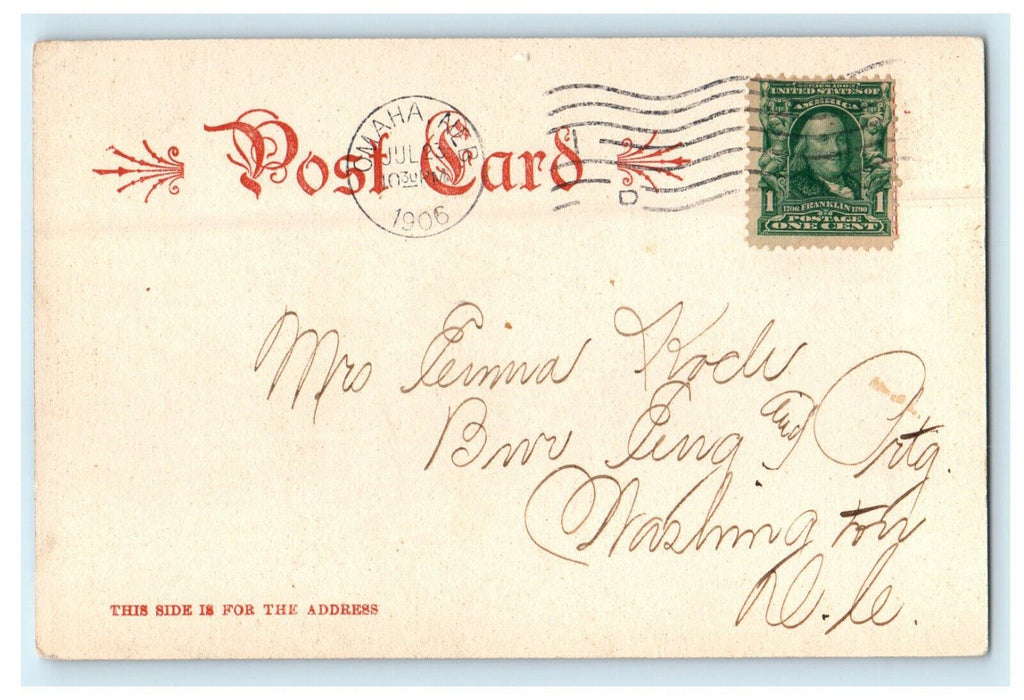 Post Card
OMAHA, NEB.
JUL 23
10 30 PM
1906
D
SERIES 1902
UNITED STATES OF
AMERICA
1 1706 FRANKLIN 1790 1
POSTAGE
ONE CENT
Mrs Koch
Bur Eng and Prtg.
Washington
D.C.
THIS SIDE IS FOR THE ADDRESS